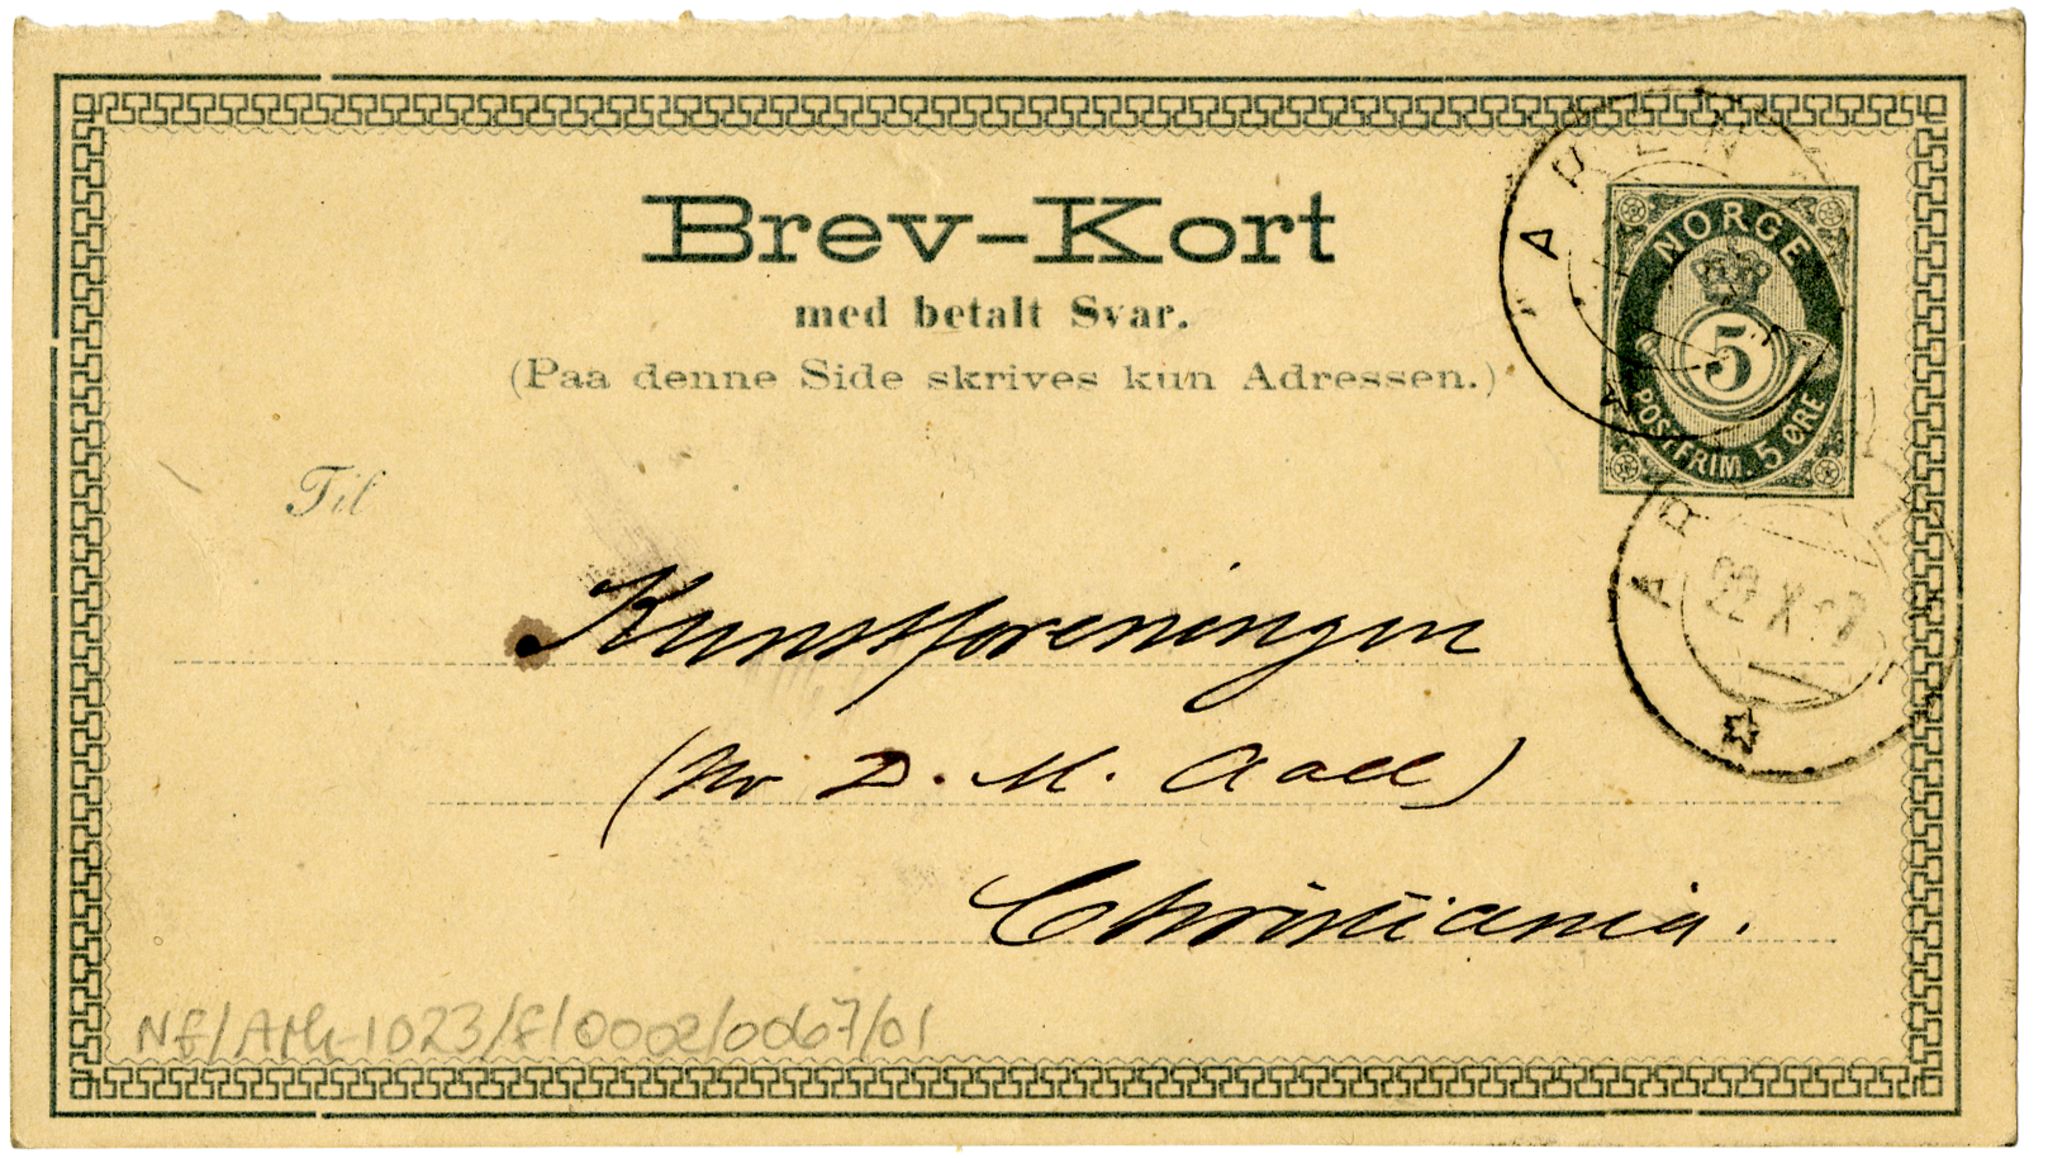 Brev-Kort
med betalt Svar.
(Paa denne Side skrives kun Adressen.)
NORGE
5
POSTFRIM. 5 ØRE
Til
Kunstforeningen
(Hr D. M. Aall)
Christiania.
AREN
22 X